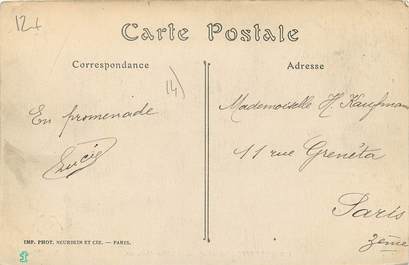 12+
Carte Postale
Correspondance
Adresse
14)
En promenade
Lucie
Mademoiselle H. Kaufman
11 rue Grenéta
Paris
3ème
IMP. PHOT. NEURDEIN ET CIE. — PARIS.